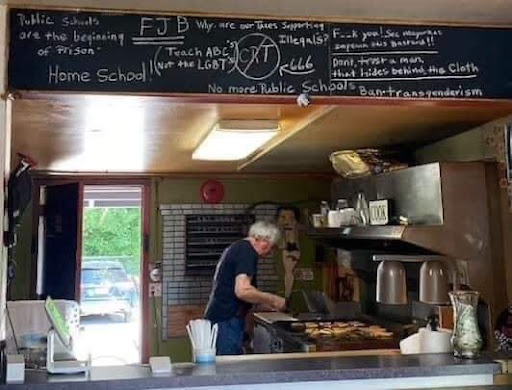 Public Schools
are the beginning
of Prison
Home School!
FJB
(Teach ABC's
Not the LGBT's)
Why are our Taxes Supporting
Illegals?
CRT
666
No more Public Schools
F--k you! Sec mayorkas
impeach this Bastard!!
Dont, trust a man,
that hides behind, the Cloth
Ban-transgenderism
COOK